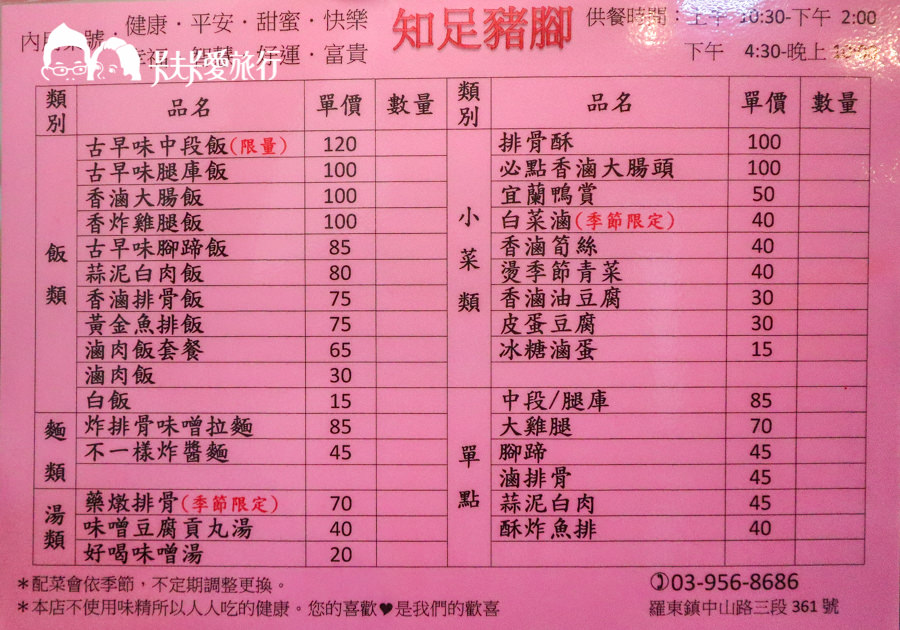 健康·平安·甜蜜·快樂
好運·富貴
知足豬腳
供餐時間：上午 10:30-下午 2:00
下午 4:30-晚上
卡夫卡愛旅行
類別 品名 單價 數量 類別 品名 單價 數量
飯類
古早味中段飯(限量) 120
古早味腿庫飯 100
香滷大腸飯 100
香炸雞腿飯 100
古早味腳蹄飯 85
蒜泥白肉飯 80
香滷排骨飯 75
黃金魚排飯 75
滷肉飯套餐 65
滷肉飯 30
白飯 15
麵類
炸排骨味噌拉麵 85
不一樣炸醬麵 45
湯類
藥燉排骨(季節限定) 70
味噌豆腐貢丸湯 40
好喝味噌湯 20
小菜類
排骨酥 100
必點香滷大腸頭 100
宜蘭鴨賞 50
白菜滷(季節限定) 40
香滷筍絲 40
燙季節青菜 40
香滷油豆腐 30
皮蛋豆腐 30
冰糖滷蛋 15
單點
中段/腿庫 85
大雞腿 70
腳蹄 45
滷排骨 45
蒜泥白肉 45
酥炸魚排 40
*配菜會依季節，不定期調整更換。
*本店不使用味精所以人人吃的健康。您的喜歡♥是我們的歡喜
✆03-956-8686
羅東鎮中山路三段 361 號